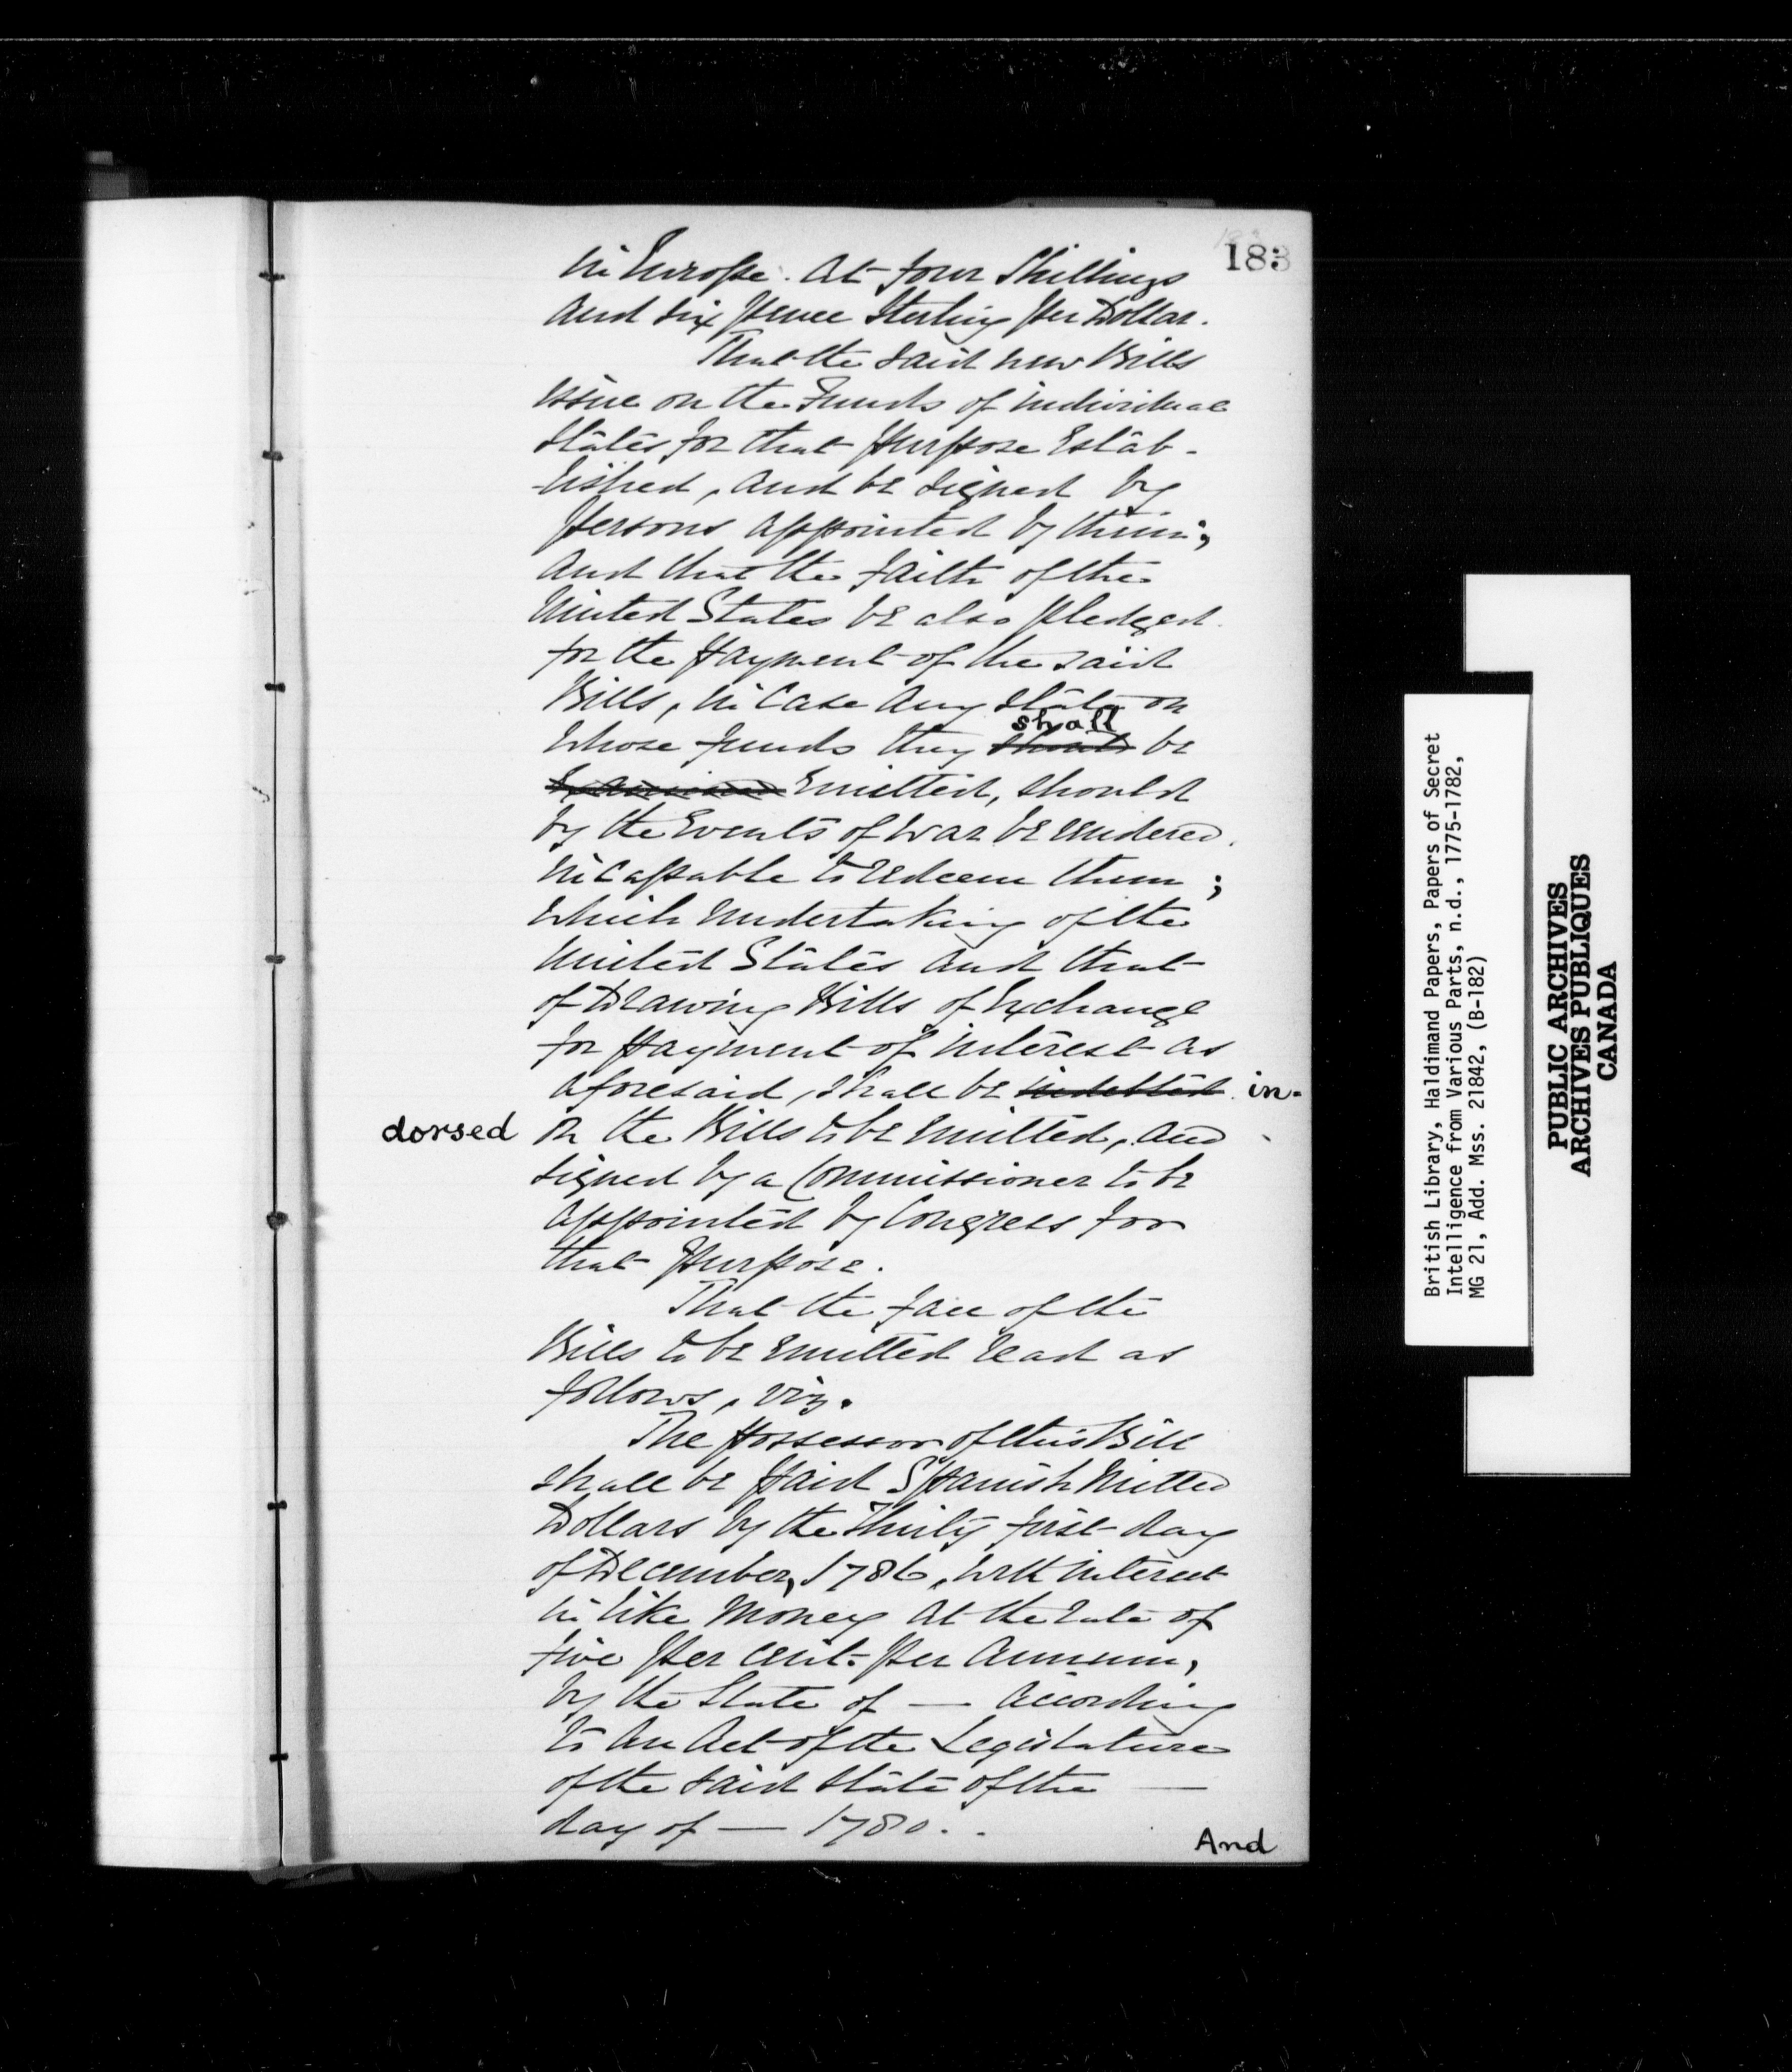 183
in Europe. at four Shillings
and six pence Sterling per Dollar.
That the said new Bills
issue on the Funds of individual
States for that purpose Estab-
-lished, and be signed by
persons appointed by them;
and that the faith of the
United States be also pledged
for the payment of the said
Bills, in Case any State on
shall
whose funds they should be
Emitted, should
by the Events of War be rendered
incapable to redeem them;
which undertaking of the
United States and that
of Drawing Bills of Exchange
for payment of interest as
aforesaid, shall be indebted in-
dorsed on the Bills to be emitted, and
signed by a Commissioner to be
appointed by Congress for
that purpose.
That the face of the
Bills to be emitted read as
follows, viz.
The possessor of this Bill
shall be paid Spanish Milled
Dollars by the Thirty first day
of December, 1786, with interest
in like Money at the rate of
five per cent. per annum,
by the State of — according
to an Act of the Legislature
of the said State of the —
day of — 1780.
And
British Library, Haldimand Papers, Papers of Secret
Intelligence from Various Parts, n.d., 1775-1782,
MG 21, Add. Mss. 21842, (B-182)
PUBLIC ARCHIVES
ARCHIVES PUBLIQUES
CANADA